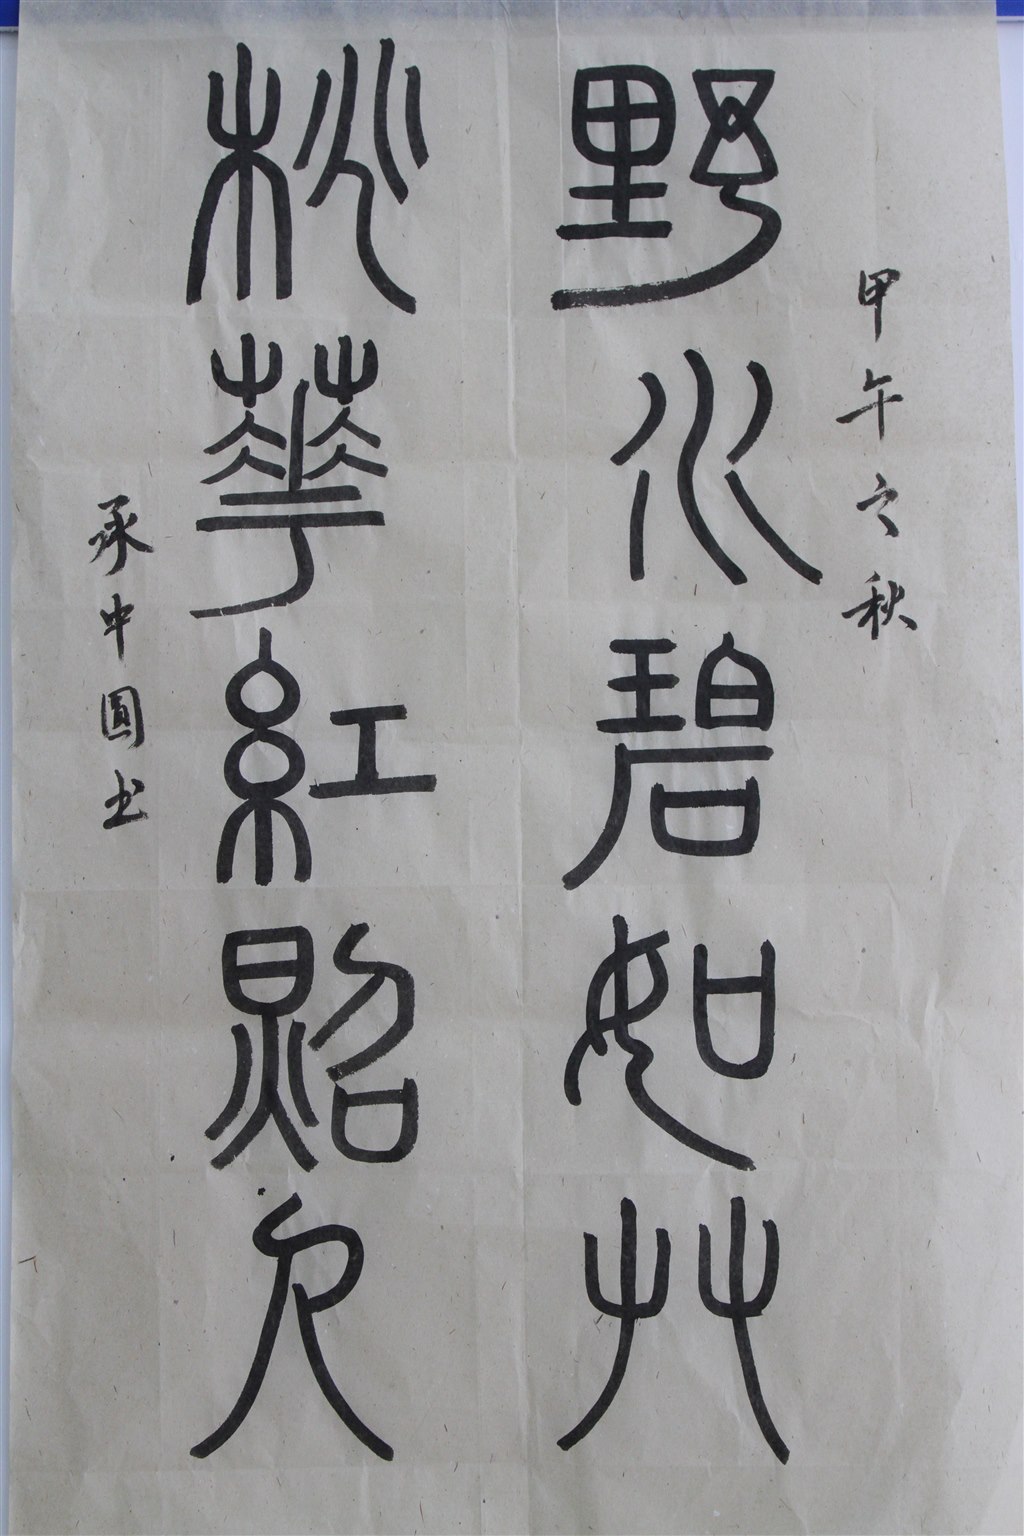 甲午之秋
野水碧如艸
桃華紅照人
承中圓书